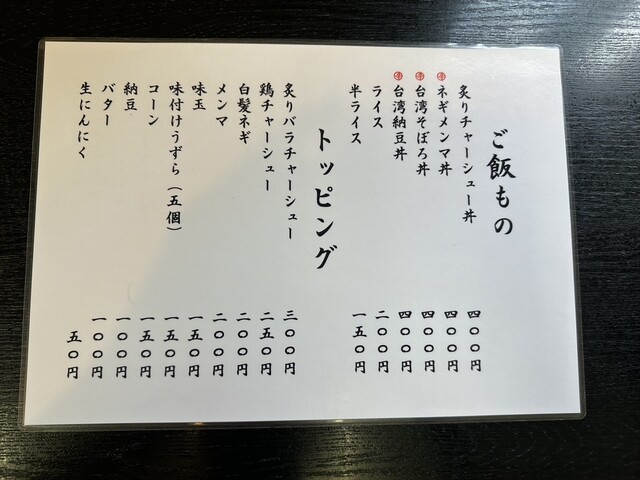 ご飯もの
炙りチャーシュー丼 四〇〇円
辛ネギメンマ丼 四〇〇円
辛台湾そぼろ丼 四〇〇円
辛台湾納豆丼 四〇〇円
ライス 二〇〇円
半ライス 一五〇円
トッピング
炙りバラチャーシュー 三〇〇円
鶏チャーシュー 二五〇円
白髪ネギ 二〇〇円
メンマ 二〇〇円
味玉 一五〇円
味付けうずら（五個） 一五〇円
コーン 一五〇円
納豆 一〇〇円
バター 一〇〇円
生にんにく 五〇円